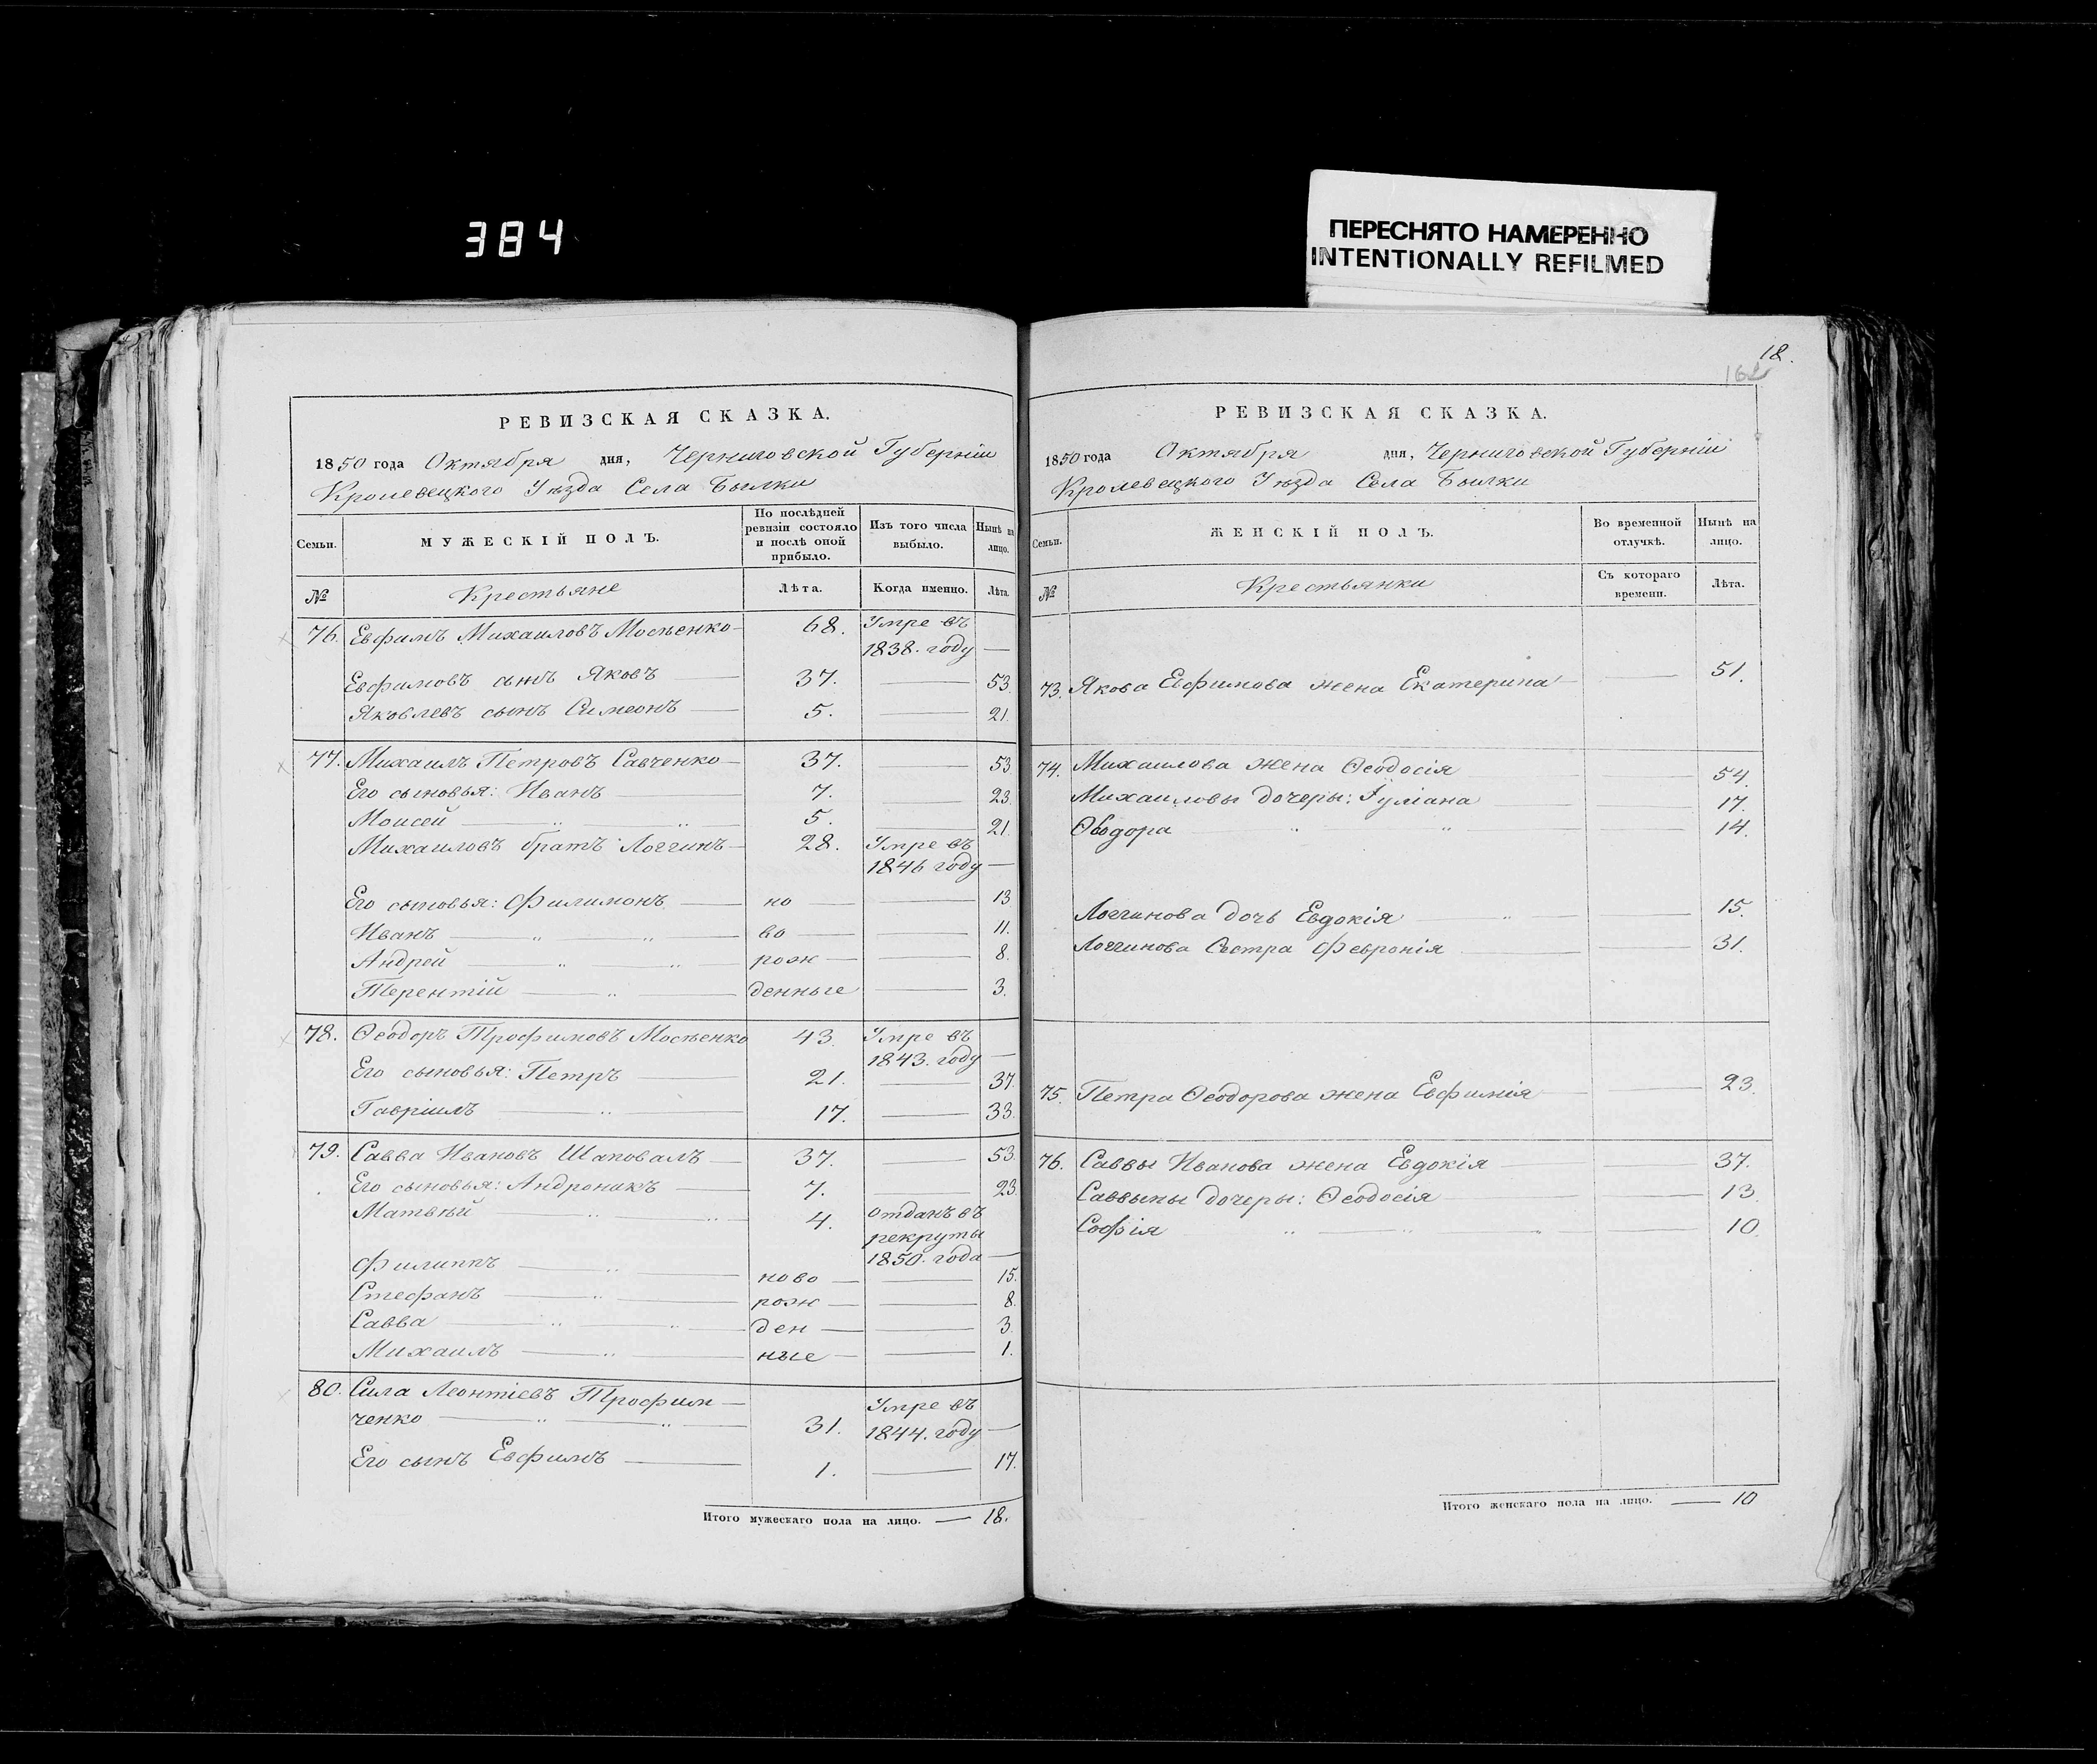 384
ПЕРЕСНЯТО НАМЕРЕННО
INTENTIONALLY REFILMED
РЕВИЗСКАЯ СКАЗКА.
1850 года Октября дня, Черниговской Губерніи
Кролевецкого Уѣзда Села Былки
Семьи.
МУЖЕСКІЙ ПОЛЪ.
По послѣдней ревизіи состояло и послѣ оной прибыло.
Изъ того числа выбыло.
Нынѣ на лицо.
№ Крестьяне Лѣта. Когда именно. Лѣта.
76. Евфимъ Михаиловъ Мосѣенко 68. Умре въ
1838. году —
Евфимовъ сынъ Яковъ 37. — 53.
Яковлевъ сынъ Симеонъ 5. — 21.
77. Михаилъ Петровъ Савченко 37. — 53
Его сыновья: Иванъ 7. — 23.
Моисей „ „ 5. — 21.
Михаиловъ братъ Логгинъ 28. Умре въ
1846 году —
Его сыновья: Филимонъ но — 13
Иванъ „ „ во — 11.
Андрей „ „ рож — 8.
Терентій „ денные — 3.
78. Ѳеодоръ Трофимовъ Мосѣенко 43. Умре въ
1843. году —
Его сыновья: Петръ 21. — 37.
Гавріилъ „ 17. — 33.
79. Савва Ивановъ Шаповалъ 37. — 53.
Его сыновья: Андроникъ 7. — 23.
Матвѣй „ „ 4. отданъ въ
рекруты
1850. года —
Филиппъ „ ново — 15.
Стефанъ „ рож — 8.
Савва „ „ ден — 3.
Михаилъ „ ные — 1.
80. Сила Леонтіевъ Трофим-
ченко „ „ 31. Умре въ
1844. году —
Его сынъ Евфимъ 1. — 17.
Итого мужескаго пола на лицо. — 18.
18.
РЕВИЗСКАЯ СКАЗКА.
1850 года Октября дня, Черниговской Губерніи
Кролевецкого Уѣзда Села Былки
Семьи.
ЖЕНСКІЙ ПОЛЪ.
Во временной отлучкѣ.
Нынѣ на лицо.
№ Крестьянки Съ котораго времени. Лѣта.
73. Якова Евфимова жена Екатерина — 51.
74. Михаилова жена Ѳеодосія — 54.
Михаиловы дочеры: Іуліана — 17.
Ѳеодора „ „ — 14.
Логгинова дочь Евдокія „ — 15.
Логгинова Сестра Февронія — 31.
75. Петра Ѳеодорова жена Евфимія — 23.
76. Саввы Иванова жена Евдокія — 37.
Саввыны дочеры: Ѳеодосія — 13.
Софія „ „ „ — 10.
Итого женскаго пола на лицо. — 10